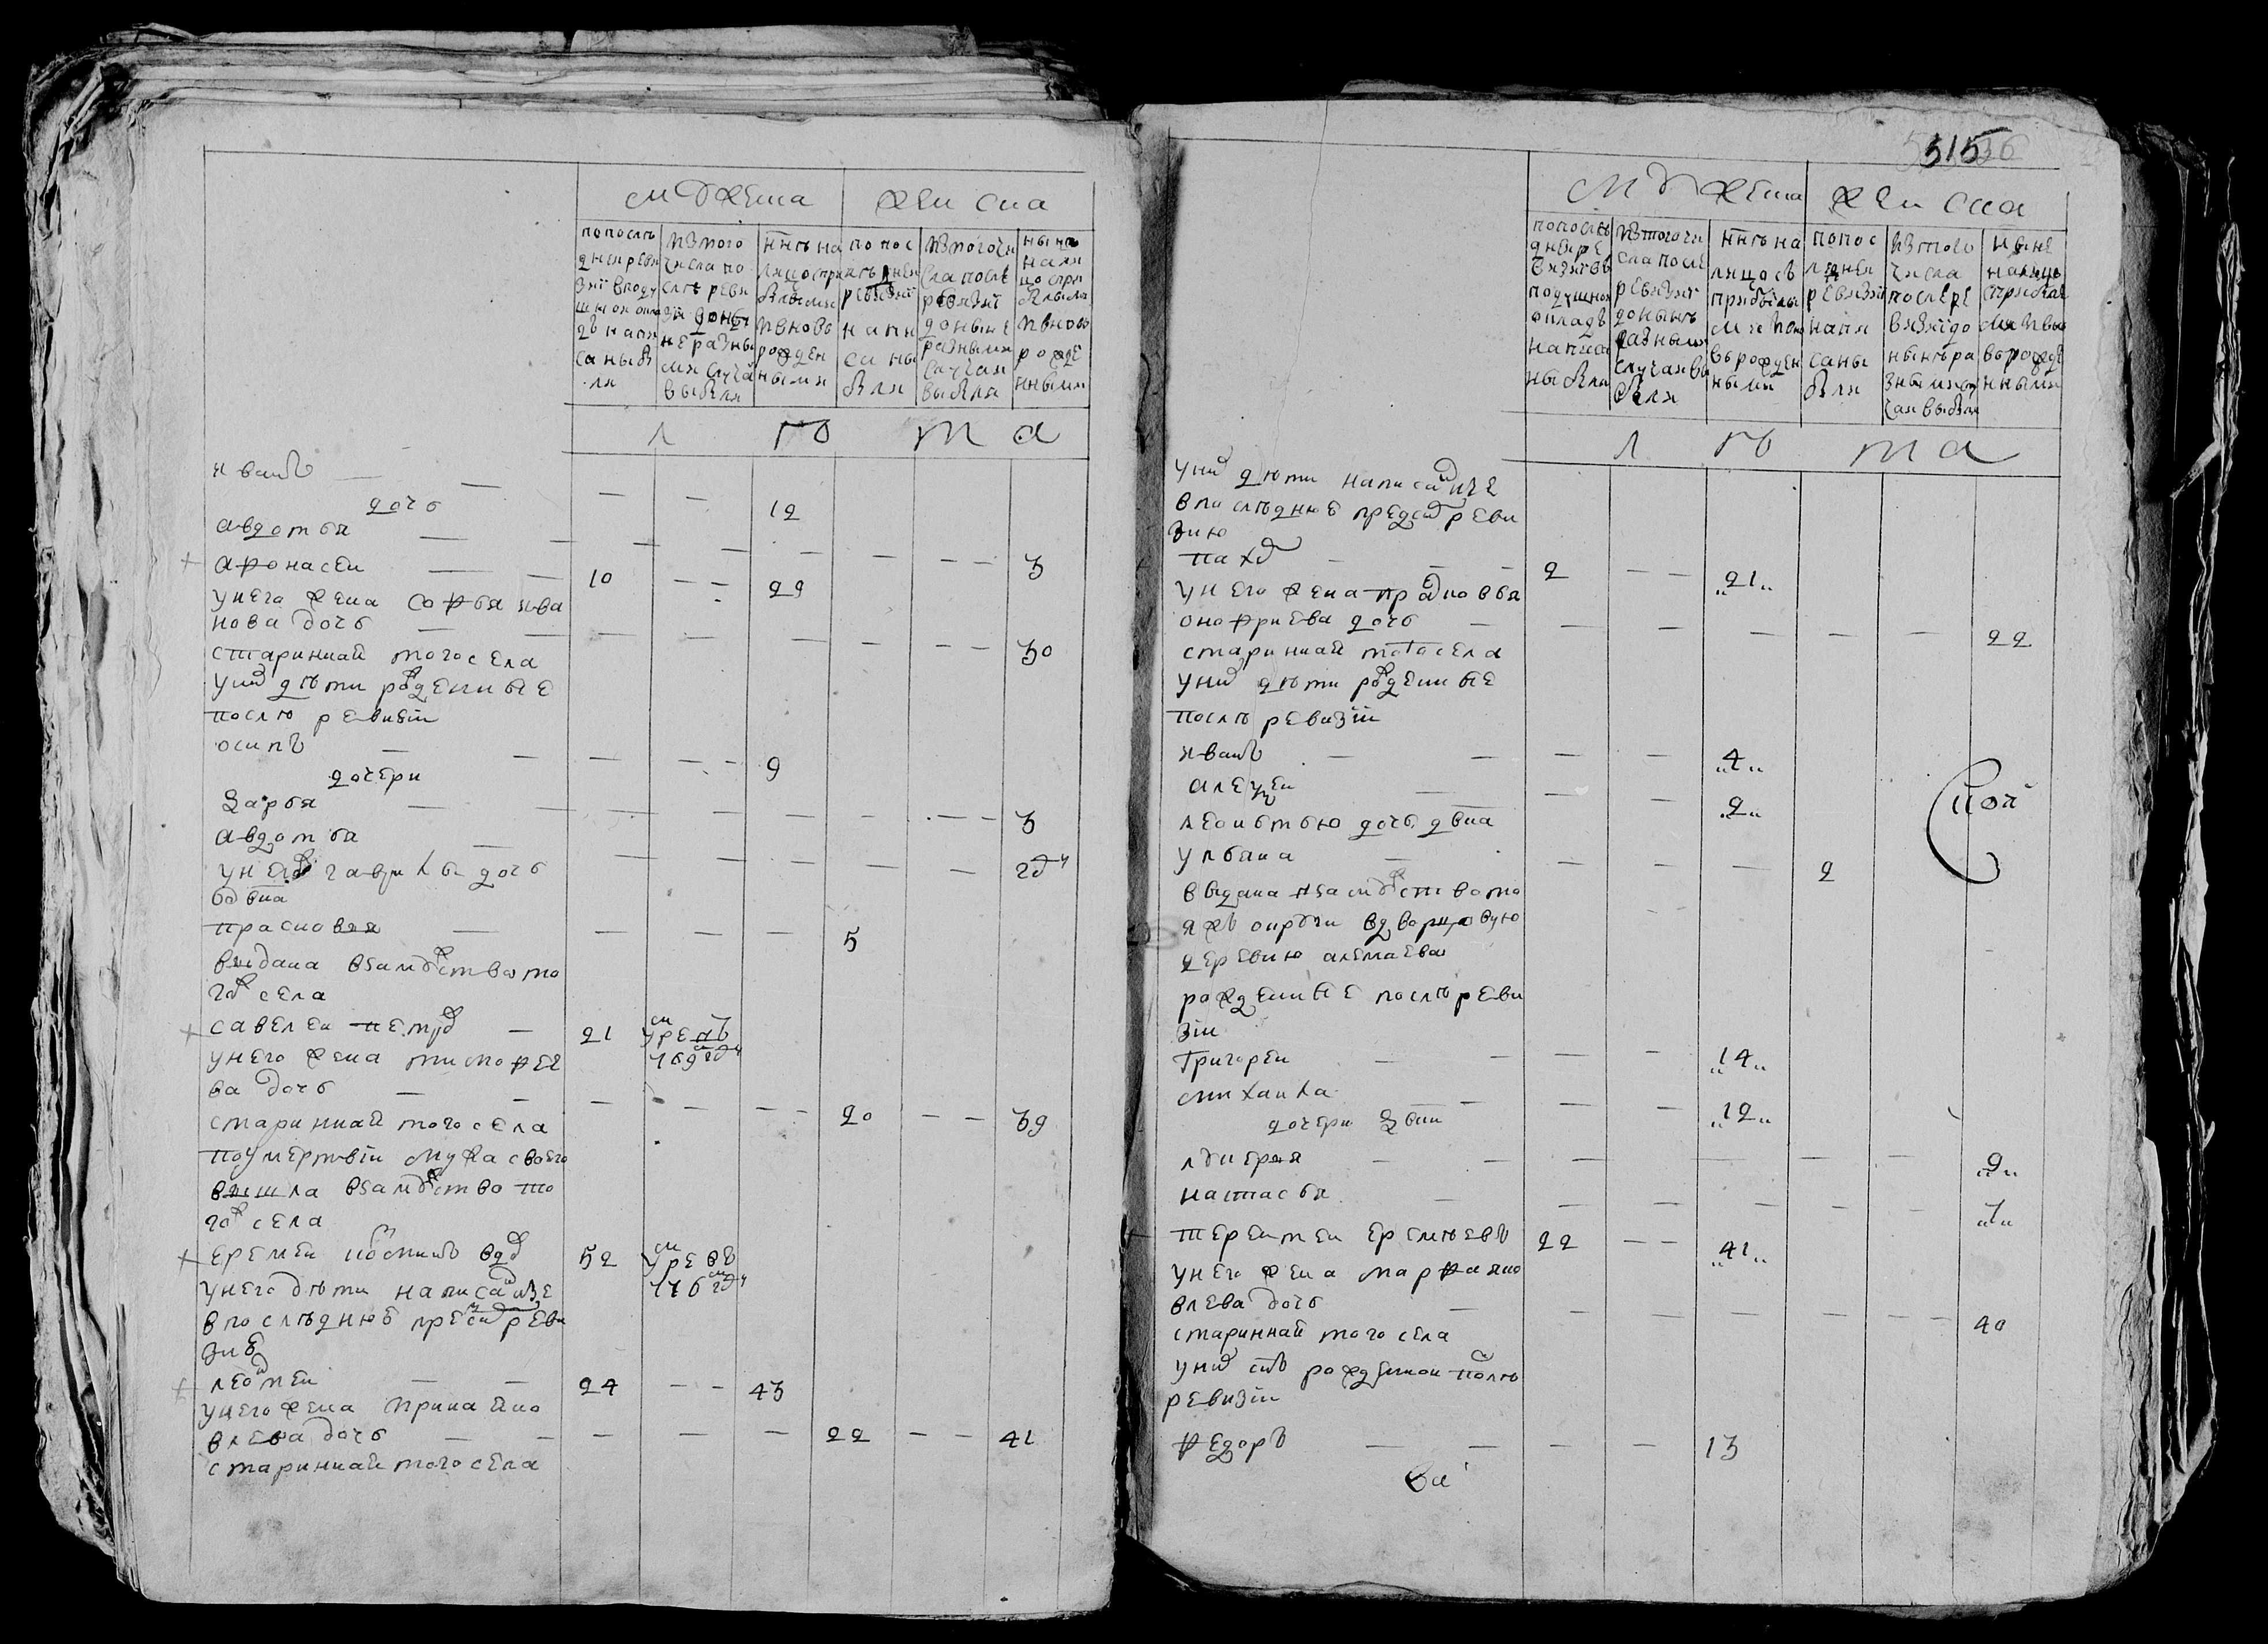 мужеска женска
попослѣ
дней реви
зіи вподу
шной окла
дъ напи
саны бы
ли
изтого
числа по
слѣ реви
зіи донын
не разны
ми случа
выбыли
ннѣ на
лицо спри
былыми
ивново
рожден
ными
по пос
лѣ дней
ревизіи
напи
саны
были
изтогочи
сла послѣ
ревизіи
донынѣ
разными
случаи
выбыли
нынѣ
нали
цо спри
былыми
ивново
рожде
нными
лѣта
иванъ — — — — 12
дочь
авдотья — — — — — — — — 3
афонасеи — — 10 — — 29
унего жена софья ива
нова дочь — — — — — — — — 30
стариннай тогосела
уних дѣти рожденные
послѣ ревизіи
осипъ — — — — — 9
дочери
дарья — — — — — — — — 3
авдотья — — — — — — год
унегож гаврилы дочь
давна
прасковья — — — — — 5
выдана взамужство то
гож села
савелеи петров — 21 умре въ
769м году
унего жена тимофее
ва дочь — — — — — — 20 — — 39
стариннай того села
поумертвіи мужа своего
вышла взамужство то
гож села
еремеи козминъ вдов 52 умре въ
776м году
унего дѣти написанные
впослѣднюю предсию реви
зию
леонтеи — — 24 — — 43
унего жена ирина яко
влева дочь — — — — — 22 — — 41
стариннай тогосела
515
мужеска женска
попослѣ
дней ре
визіи въ
подушном
окладѣ
написа
ны были
изтогочи
сла послѣ
ревизіи
донынѣ
разными
случаи вы
были
ннѣ на
лицо съ
прибылы
ми ивно
въ рожден
ными
попос
лѣдней
ревизіи
напи
саны
были
изтого
числа
послѣ ре
визіи до
нынѣ ра
зными слу
чаи выбыли
нынѣ
налицо
сприбыл
ми ивно
въ рожде
нными
лѣта
уних дѣти написанные
впослѣднюю предсию реви
зию
пахом — — — 2 — — 21
унего жена прасковья
онофриева дочь — — — — — — — 22
стариннай тогосела
уних дѣти рожденные
послѣ ревизіи
иванъ — — — — 4
алеѯеи — — — 2
леонтью дочь давна
ульяна — — — — 2
выдана взамужство то
яжъ округи вдворцовую
деревню алемаеву
рожденные послѣ реви
зіи
григореи — — — — 14
михаила — — — — 12
дочери двки
лукерья — — — — — — — 9
настасья — — — — — — 7
терентеи еремѣевъ 22 — — 41
унего жена марфа яко
влева дочь — — — — — — — — 40
стариннай того села
уних снъ рожденнои послѣ
ревизіи
федоръ — — — — 13